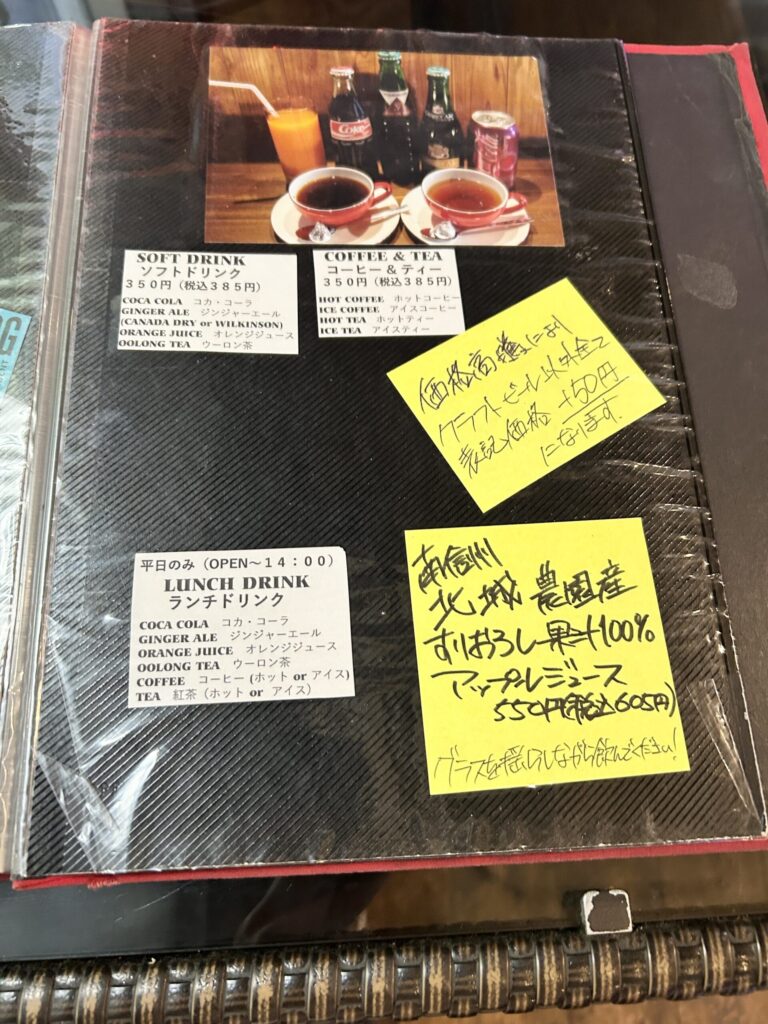 Coke
SOFT DRINK
ソフトドリンク
350円（税込385円）
COCA COLA コカ・コーラ
GINGER ALE ジンジャーエール
(CANADA DRY or WILKINSON)
ORANGE JUICE オレンジジュース
OOLONG TEA ウーロン茶
COFFEE & TEA
コーヒー＆ティー
350円（税込385円）
HOT COFFEE ホットコーヒー
ICE COFFEE アイスコーヒー
HOT TEA ホットティー
ICE TEA アイスティー
価格高騰により
クラフトビール以外全て
表記価格 +50円
になります.
平日のみ（OPEN～14：00）
LUNCH DRINK
ランチドリンク
COCA COLA コカ・コーラ
GINGER ALE ジンジャーエール
ORANGE JUICE オレンジジュース
OOLONG TEA ウーロン茶
COFFEE コーヒー (ホット or アイス)
TEA 紅茶（ホット or アイス）
南信州
北城農園産
すりおろし果汁100%
アップルジュース
550円(税込605円)
グラスを揺らしながら飲んでください!